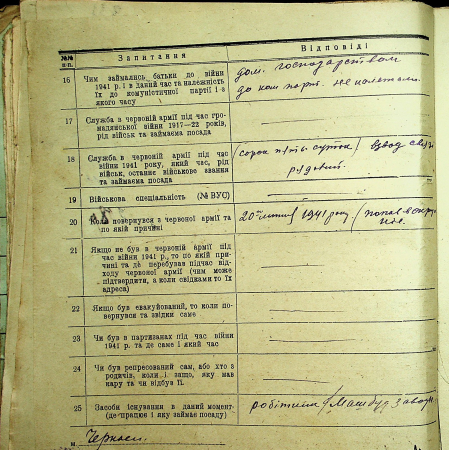 №№ п.п.
Запитання
Відповіді
16
Чим займались батьки до війни
1941 р. і в даний час та належність
їх до комуністичної партії і з
якого часу
дом. господарством
до ком парт. не належали.
17
Служба в червоній армії під час гро-
мадянської війни 1917—22 років,
рід військ та займаєма посада
18
Служба в червоній армії під час
війни 1941 року, який час, рід
військ, останнє військове звання
та займаєма посада
(сорок п'ять суток) Взвод
рудовий.
19
Військова спеціальність (№ ВУС)
20
Коли повернувся з червоної армії та
по якій причині
1941 року
21
Якщо не був в червоній армії під
час війни 1941 р., то по якій при-
чині та де перебував підчас від-
ходу червоної армії (чим може
підтвердити, з коли свідками то їх
адреса)
22
Якщо був евакуйований, то коли по-
вернувся та звідки саме
23
Чи був в партизанах під час війни
1941 р. та де саме і який час
24
Чи був репресований сам, або хто з
родичів, коли і защо, яку мав
кару та чи відбув її.
25
Засоби існування в даний момент
(де працює і яку займає посаду)
робітник (Машбуд Завод
м. Черкаси.